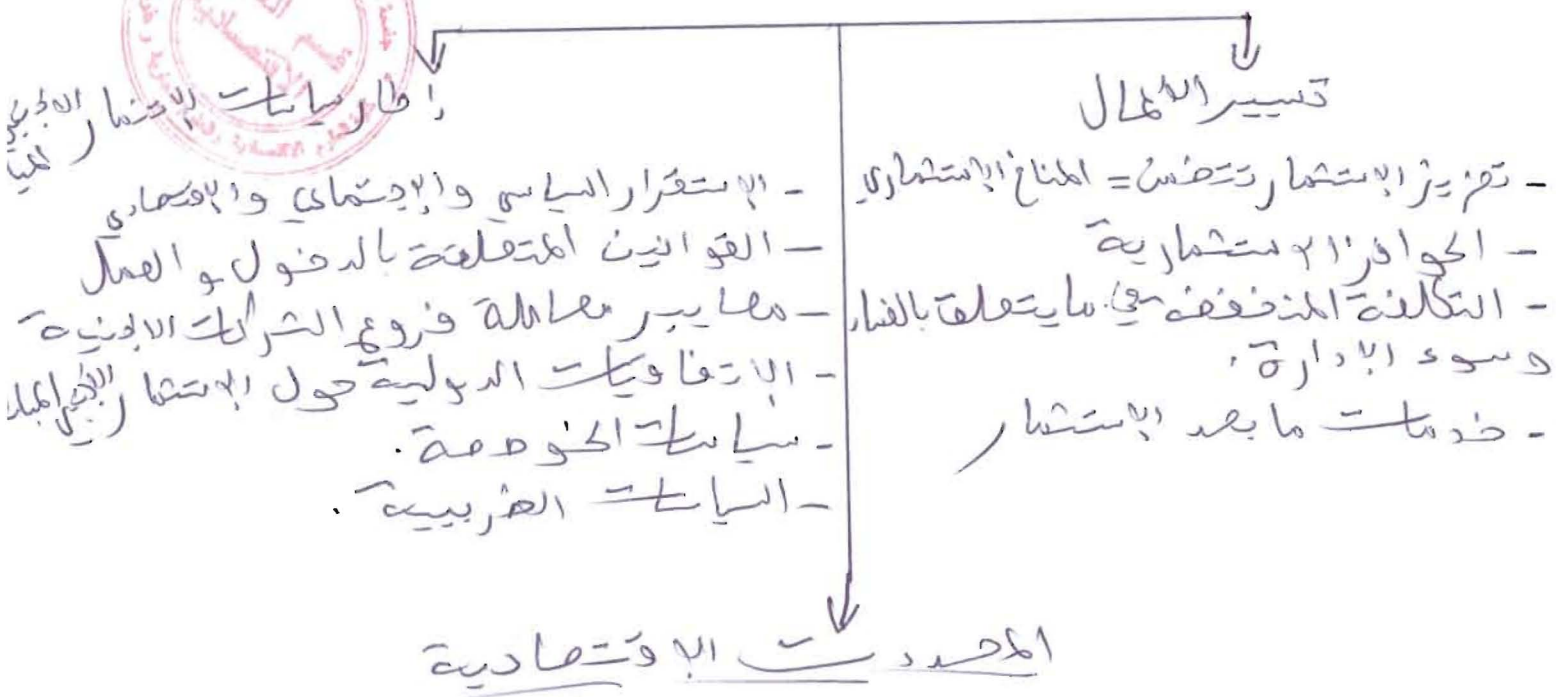 تسيير الاعمال
- تعزيز الاستثمار تتضمن = المناخ الاستثماري
- الحوافز الاستثمارية
- التكلفة المنخفضة في ما يتعلق بالفساد
وسوء الإدارة.
- خدمات ما بعد الإستثمار
إطار سياسات الإستثمار الاجنبي
- الإستقرار السياسي والإجتماعي والإقتصادي
- القوانين المتعلقة بالدخول والعمل
- معايير معاملة فروع الشركات الاجنبية
- الإتفاقيات الدولية حول الإستثمار الأجنبي المباشر
- سياسات الخوصصة.
- السياسات الضريبية.
المحددات الإقتصادية